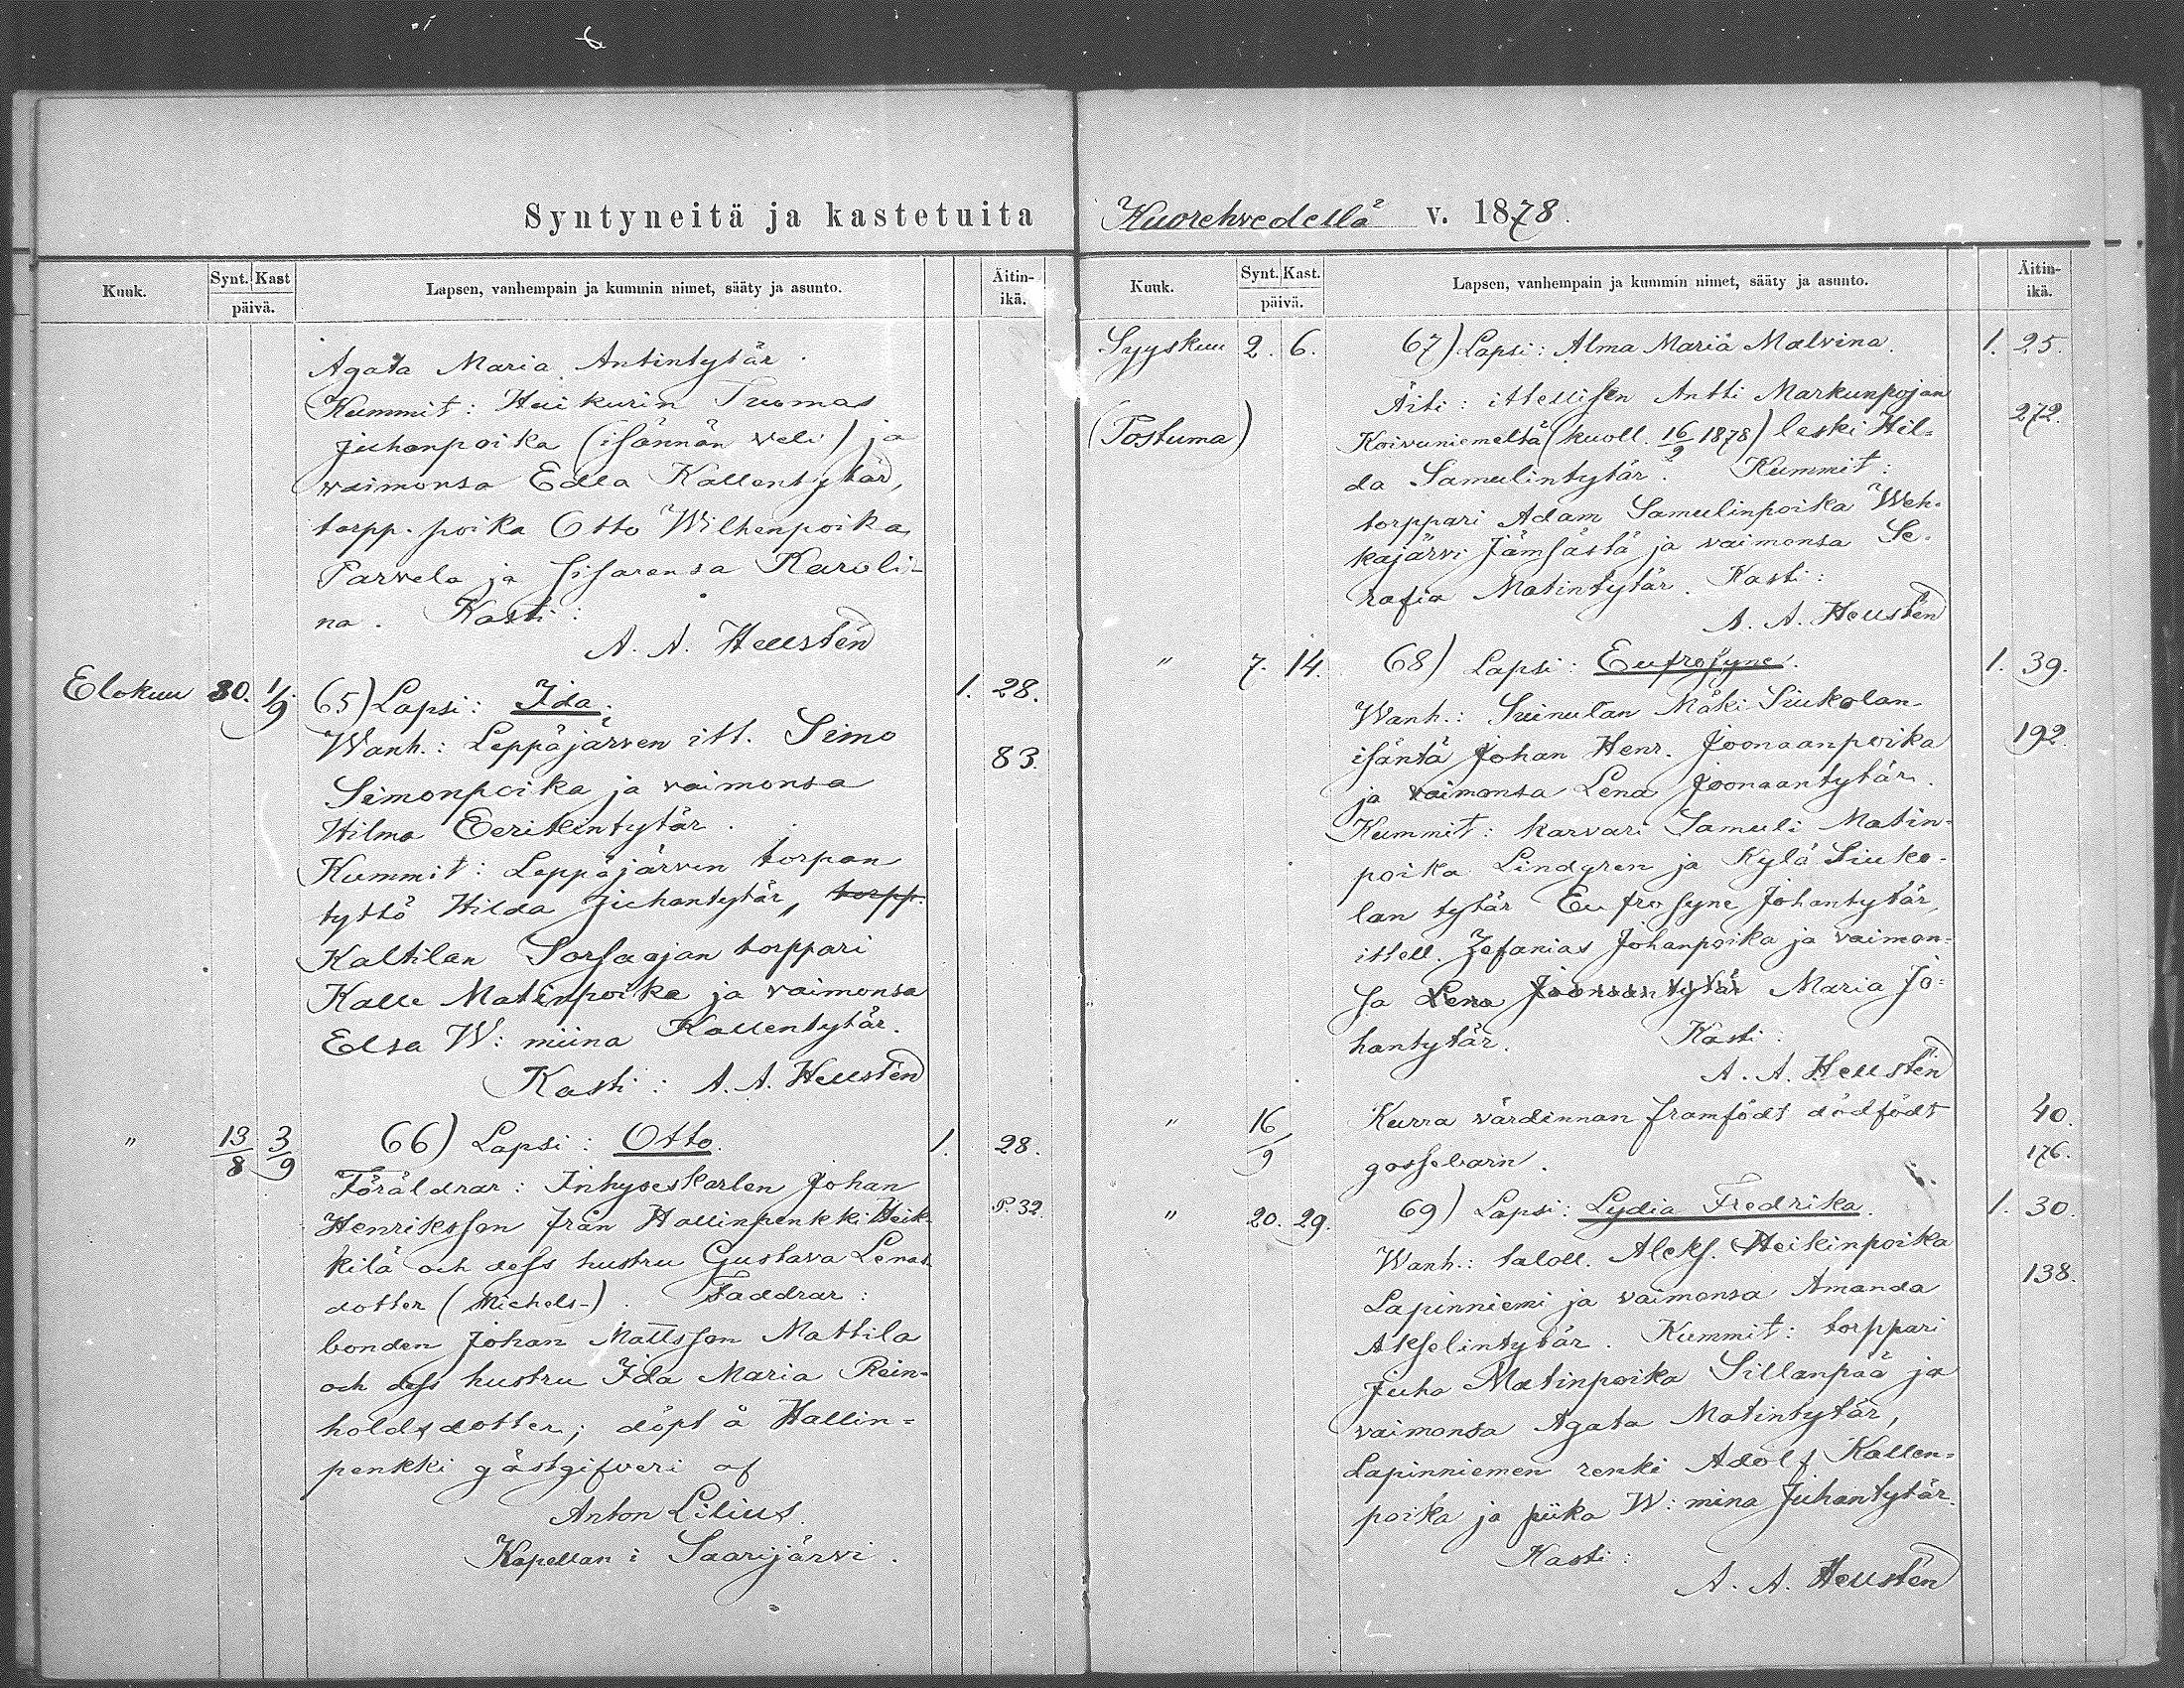 Syntyneitä ja kastetuita
Kuuk.
Synt. Kast
päivä.
Lapsen, vanhempain ja kummin nimet, sääty ja asunto.
Äitin-
ikä.
Agata Maria Antintytär.
Kummit: Heikurin Tuomas
Juhanpoika (isännän veli) ja
vaimonsa Edla Kallentytär,
torpp. poika Otto Wilhenpoika
Parvela ja sisarensa Karoli-
na. Kasti:
A. A. Hellstén
Elokuu 30. 1/9 65) Lapsi: Ida. 1. 28.
Wanh.: Leppäjärven itt. Simo
83.
Simonpoika ja vaimonsa
Hilma Eerikintytär.
Kummit: Leppäjärven torpan
tyttö Hilda Juhantytär, torpp.
Kaltilan Sorsaajan torppari
Kalle Matinpoika ja vaimonsa
Elsa W:miina Kallentytär.
Kasti: A. A. Hellstén
" 13/8 3/9 66) Lapsi: Otto. 1. 28.
Föräldrar: Inhyseskarlen Johan
Henriksson från Hallinpenkki Heik- P. 32.
kilä och dess hustru Gustava Lenas
dotter (Michels-). Faddrar:
bonden Johan Mattsson Mattila
och dess hustru Ida Maria Rein-
holdsdotter; döpt å Hallin=
penkki gästgifveri af
Anton Lilius.
Kapellan i Saarijärvi.
Kuorehvedellä v. 1878.
Kuuk.
Synt. Kast.
päivä.
Lapsen, vanhempain ja kummin nimet, sääty ja asunto.
Äitin-
ikä.
Syyskuu 2. 6. 67) Lapsi: Alma Maria Malvina. 1. 25.
Äiti: ittellisen Antti Markunpojan
272.
(Postuma) Koivuniemeltä (kuoll. 16/2 1878) leski Hil=
da Samulintytär. Kummit:
torppari Adam Samulinpoika Weh-
kajärvi Jämsästä ja vaimonsa Se-
rafia Matintytär. Kasti:
A. A. Hellstén
" 7. 14. 68) Lapsi: Eufrosyne. 1. 39.
Wanh.: Suinulan Mäki Siukolan
isäntä Johan Henr. Joonaanpoika 192.
ja vaimonsa Lena Joonaantytär.
Kummit: karvari Samuli Matin-
poika Lindgren ja Kylä Siuko-
lan tytär Eufrosyne Johantytär,
ittell. Zefanias Johanpoika ja vaimon=
sa Lena Joonaantytär Maria Jo=
hantytär. Kasti:
A. A. Hellstén
" 16/9 Kurra värdinnan framfödt dödfödt 40.
gossebarn. 176.
" 20. 29. 69) Lapsi: Lydia Fredrika. 1. 30.
Wanh.: taloll. Aleks. Heikinpoika
138.
Lapinniemi ja vaimonsa Amanda
Akselintytär. Kummit: torppari
Juha Matinpoika Sillanpää ja
vaimonsa Agata Matintytär,
Lapinniemen renki Adolf Kallen=
poika ja piika W:mina Juhantytär.
Kasti:
A. A. Hellstén